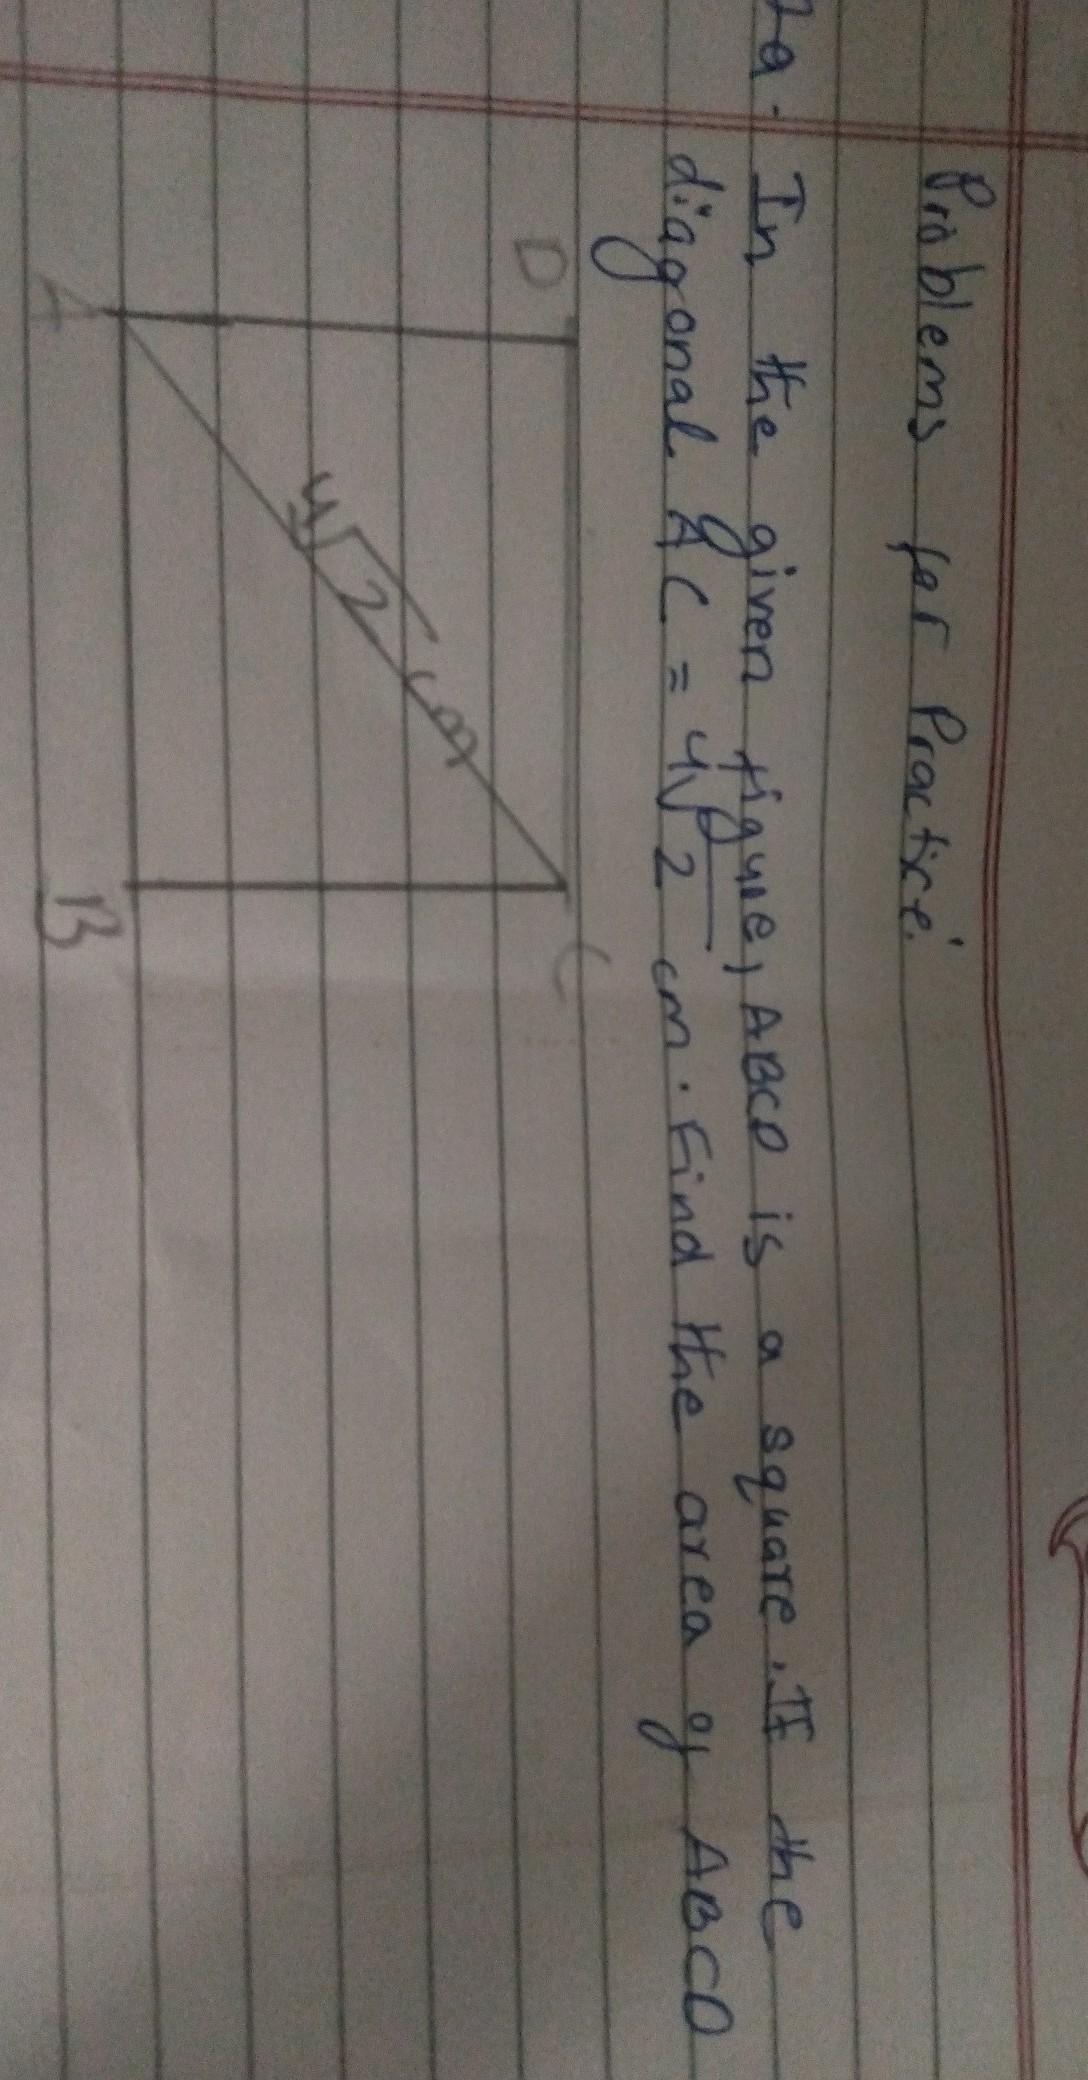 Problems for Practice.
2a. In the given figure, ABCD is a square. If the
diagonal AC = 4√2 cm. Find the area of ABCD
D
C
4√2 cm
A
B